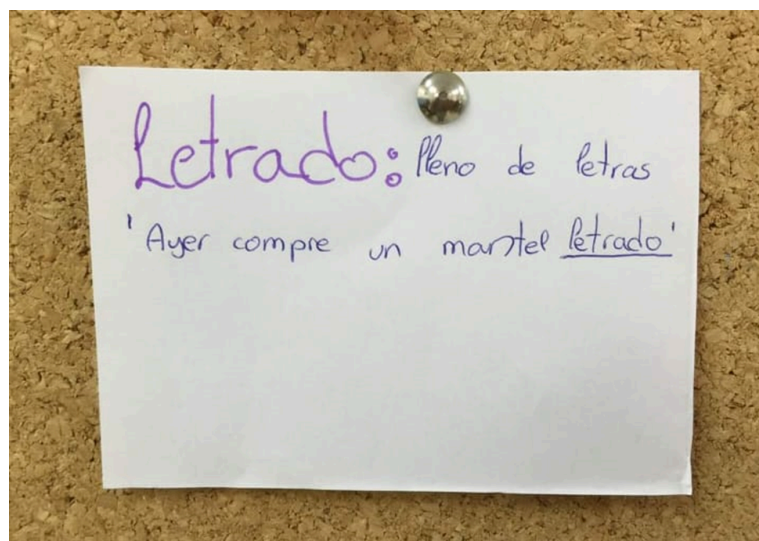 Letrado: lleno de letras
'Ayer compre un mantel letrado'